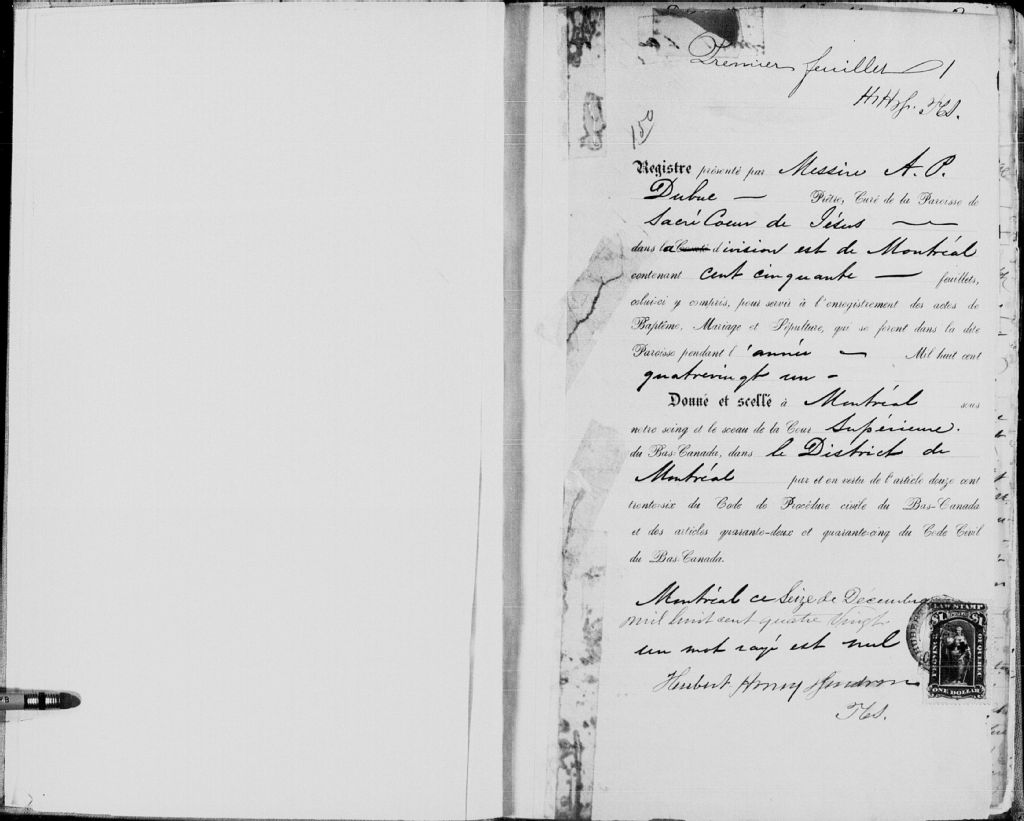 Premier feuillet 1
150
Registre présenté par Messire A. P.
Dubuc — Prêtre, Curé de la Paroisse de
Sacré Coeur de Jésus —
dans la Comté division est de Montréal
contenant cent cinquante — feuillets,
celui-ci y compris, pour servir à l'enregistrement des actes de
Baptême, Mariage et Sépulture, qui se feront dans la dite
Paroisse pendant l'année — Mil huit cent
quatrevingt un -
Donné et scellé à Montréal sous
notre seing et le sceau de la Cour Supérieure.
du Bas-Canada, dans le District de
Montréal par et en vertu de l'article douze cent
trente-six du Code de Procédure civile du Bas-Canada
et des articles quarante-deux et quarante-cinq du Code Civil
du Bas-Canada.
Montréal ce Seize de Décembre
mil huit cent quatre vingt
un mot rayé est nul
Hubert Honey
LAW STAMP
PROVINCE
OF QUEBEC
ONE DOLLAR